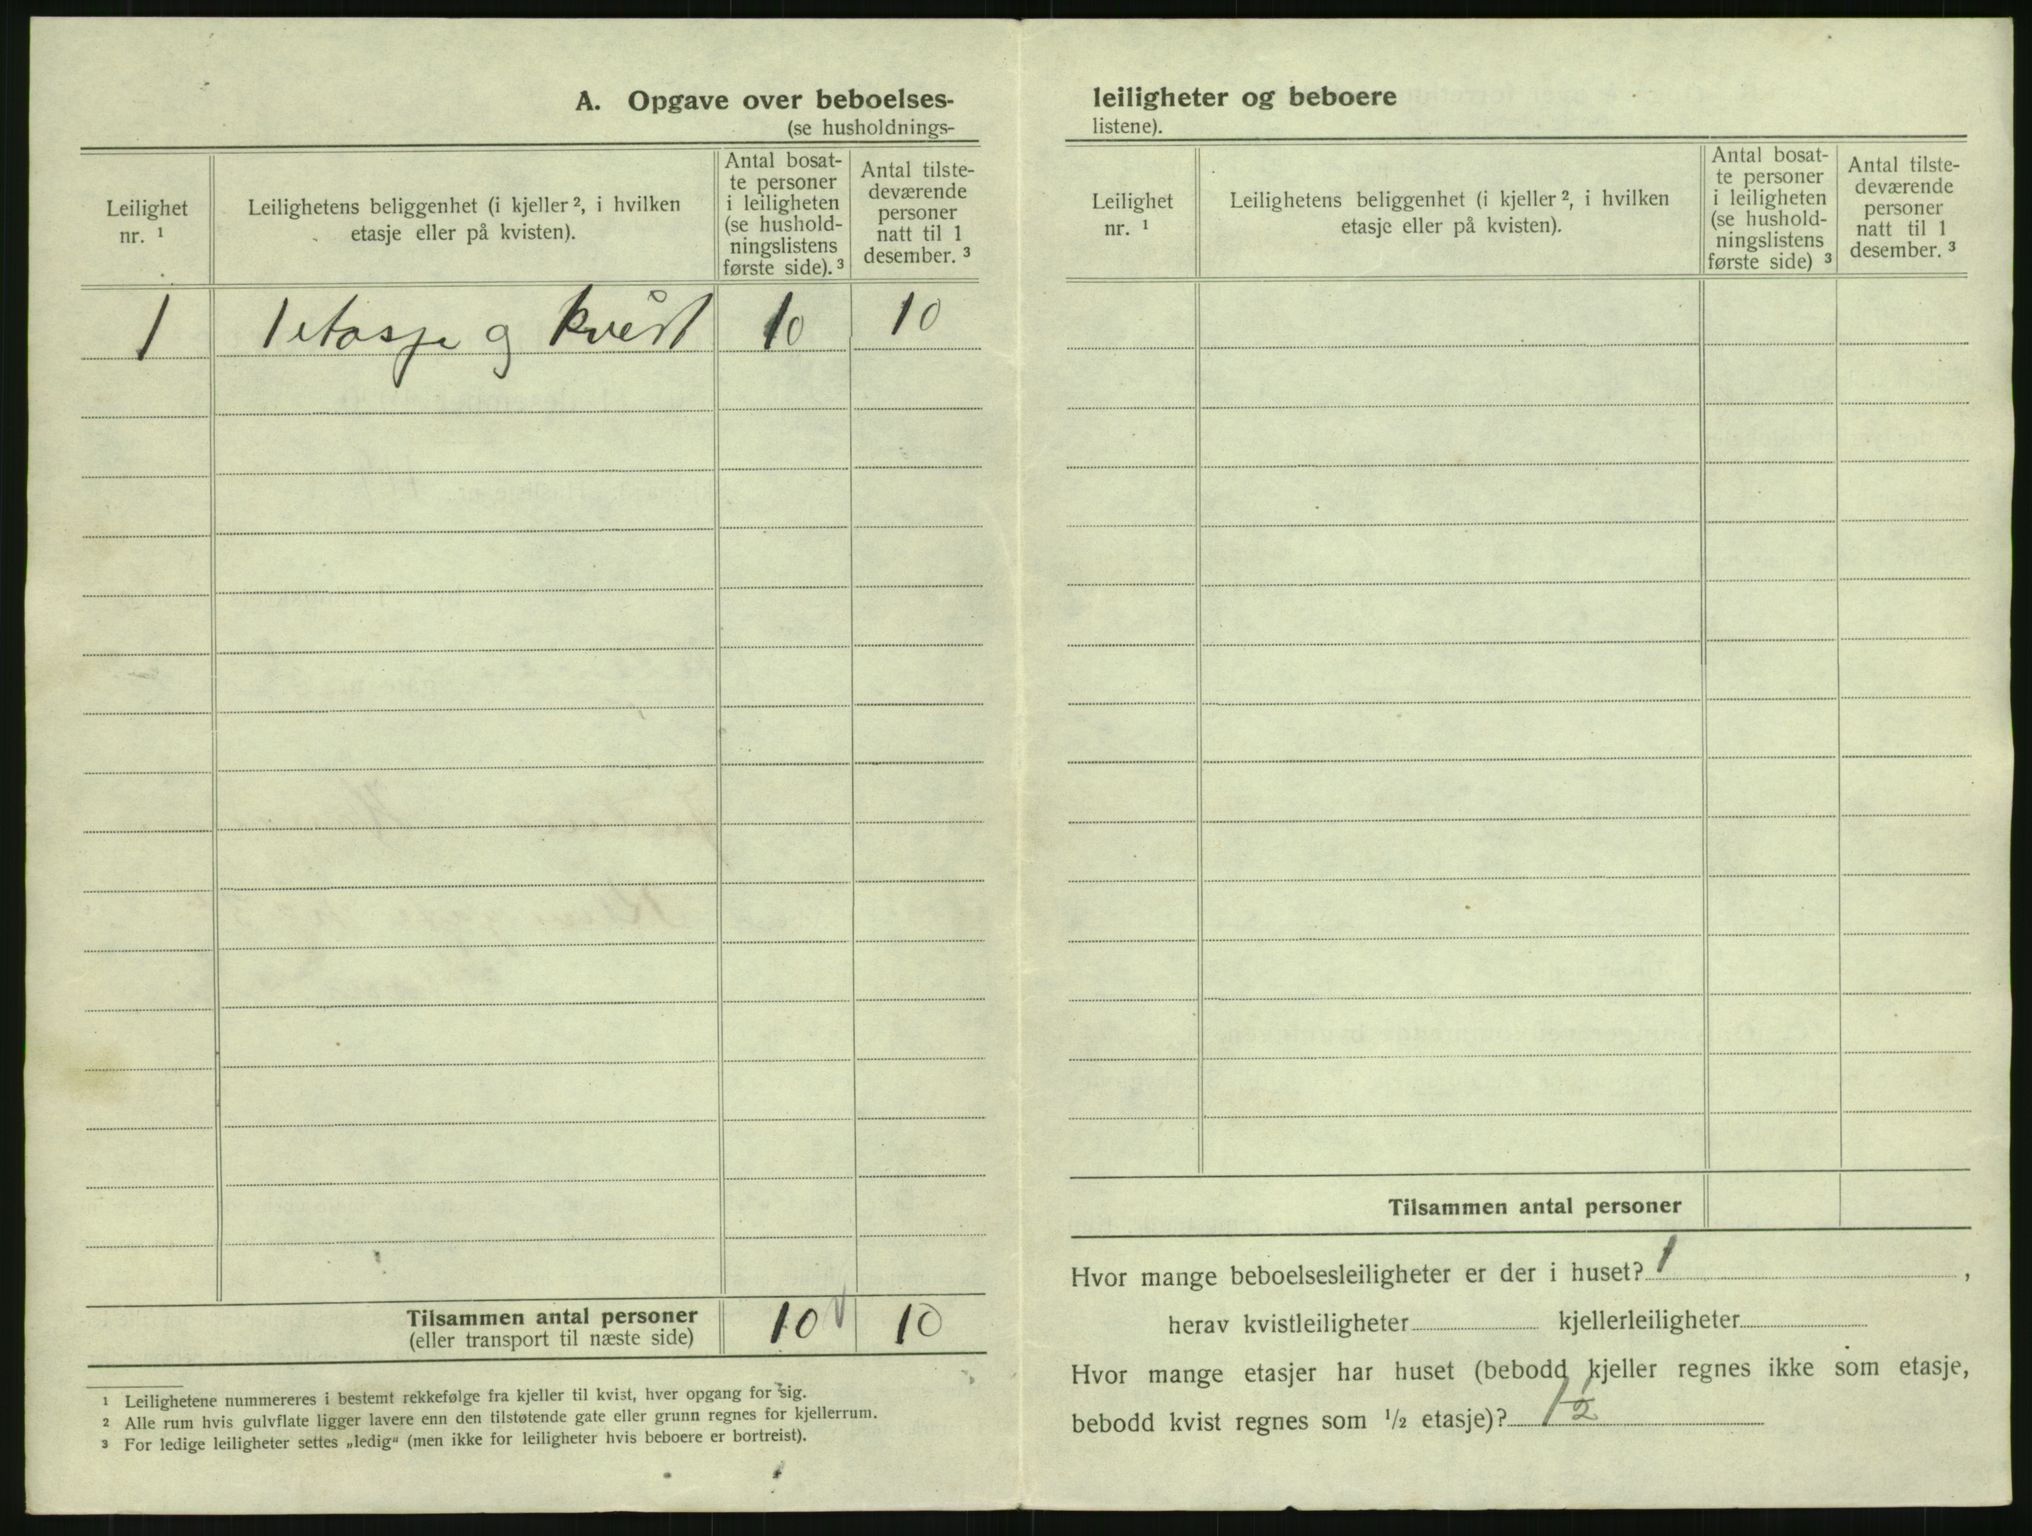 A. Opgave over beboelses-
(se husholdnings-
Leilighet
nr. ¹
Leilighetens beliggenhet (i kjeller ², i hvilken
etasje eller på kvisten).
Antal bosat-
te personer
i leiligheten
(se hushold-
ningslistens
første side). ³
Antal tilste-
deværende
personer
natt til 1
desember. ³
1 1 etasje og kvist 10 10
Tilsammen antal personer
(eller transport til næste side)
10 10
1 Leilighetene nummereres i bestemt rekkefølge fra kjeller til kvist, hver opgang for sig.
2 Alle rum hvis gulvflate ligger lavere enn den tilstøtende gate eller grunn regnes for kjellerrum.
3 For ledige leiligheter settes „ledig“ (men ikke for leiligheter hvis beboere er bortreist).
leiligheter og beboere
listene).
Leilighet
nr. ¹
Leilighetens beliggenhet (i kjeller ², i hvilken
etasje eller på kvisten).
Antal bosat-
te personer
i leiligheten
(se hushold-
ningslistens
første side) ³
Antal tilste-
deværende
personer
natt til 1
desember. ³
Tilsammen antal personer
Hvor mange beboelsesleiligheter er der i huset? 1 ,
herav kvistleiligheter kjellerleiligheter
Hvor mange etasjer har huset (bebodd kjeller regnes ikke som etasje,
bebodd kvist regnes som ½ etasje)? 1½